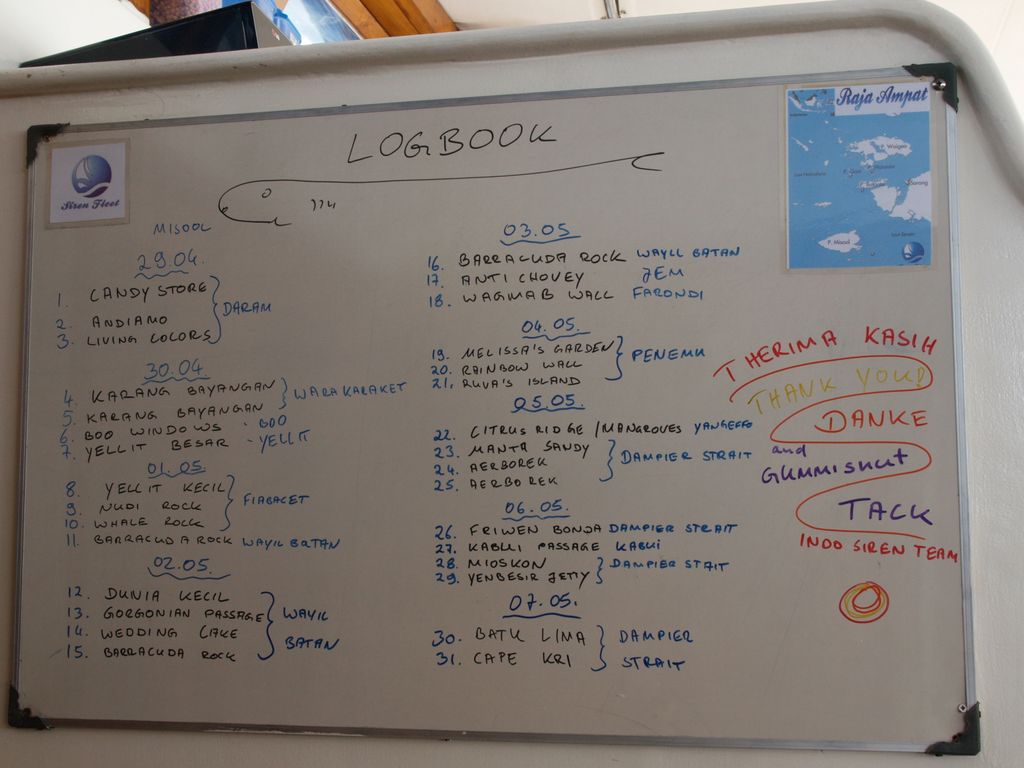 LOGBOOK
Siren Fleet
Raja Ampat
P. Waigeo
Sorong
P. Misool
MISOOL
29.04.
1. CANDY STORE
2. ANDIAMO
3. LIVING COLORS
DARAM
30.04
4. KARANG BAYANGAN
5. KARANG BAYANGAN
WARAKARAKET
6. BOO WINDOWS - BOO
7. YELLIT BESAR - YELLIT
01.05
8. YELLIT KECIL
9. NUDI ROCK
10. WHALE ROCK
FIABACET
11. BARRACUDA ROCK WAYIL BATAN
02.05.
12. DUNIA KECIL
13. GORGONIAN PASSAGE
14. WEDDING CAKE
15. BARRACUDA ROCK
WAYIL
BATAN
03.05
16. BARRACUDA ROCK WAYIL BATAN
17. ANTI CHOVEY JEM
18. WAGMAB WALL FARONDI
04.05.
19. MELISSA'S GARDEN
20. RAINBOW WALL
21. RUVA'S ISLAND
PENEMU
05.05.
22. CITRUS RIDGE / MANGROVES YANGEFFO
23. MANTA SANDY
24. AERBOREK
25. AERBOREK
DAMPIER STRAIT
06.05.
26. FRIWEN BONDA DAMPIER STRAIT
27. KABUI PASSAGE KABUI
28. MIOSKON
29. YENBESIR JETTY
DAMPIER STRAIT
07.05.
30. BATU LIMA
31. CAPE KRI
DAMPIER
STRAIT
THERIMA KASIH
THANK YOU
DANKE
and
GUMMISKUT
TACK
INDO SIREN TEAM